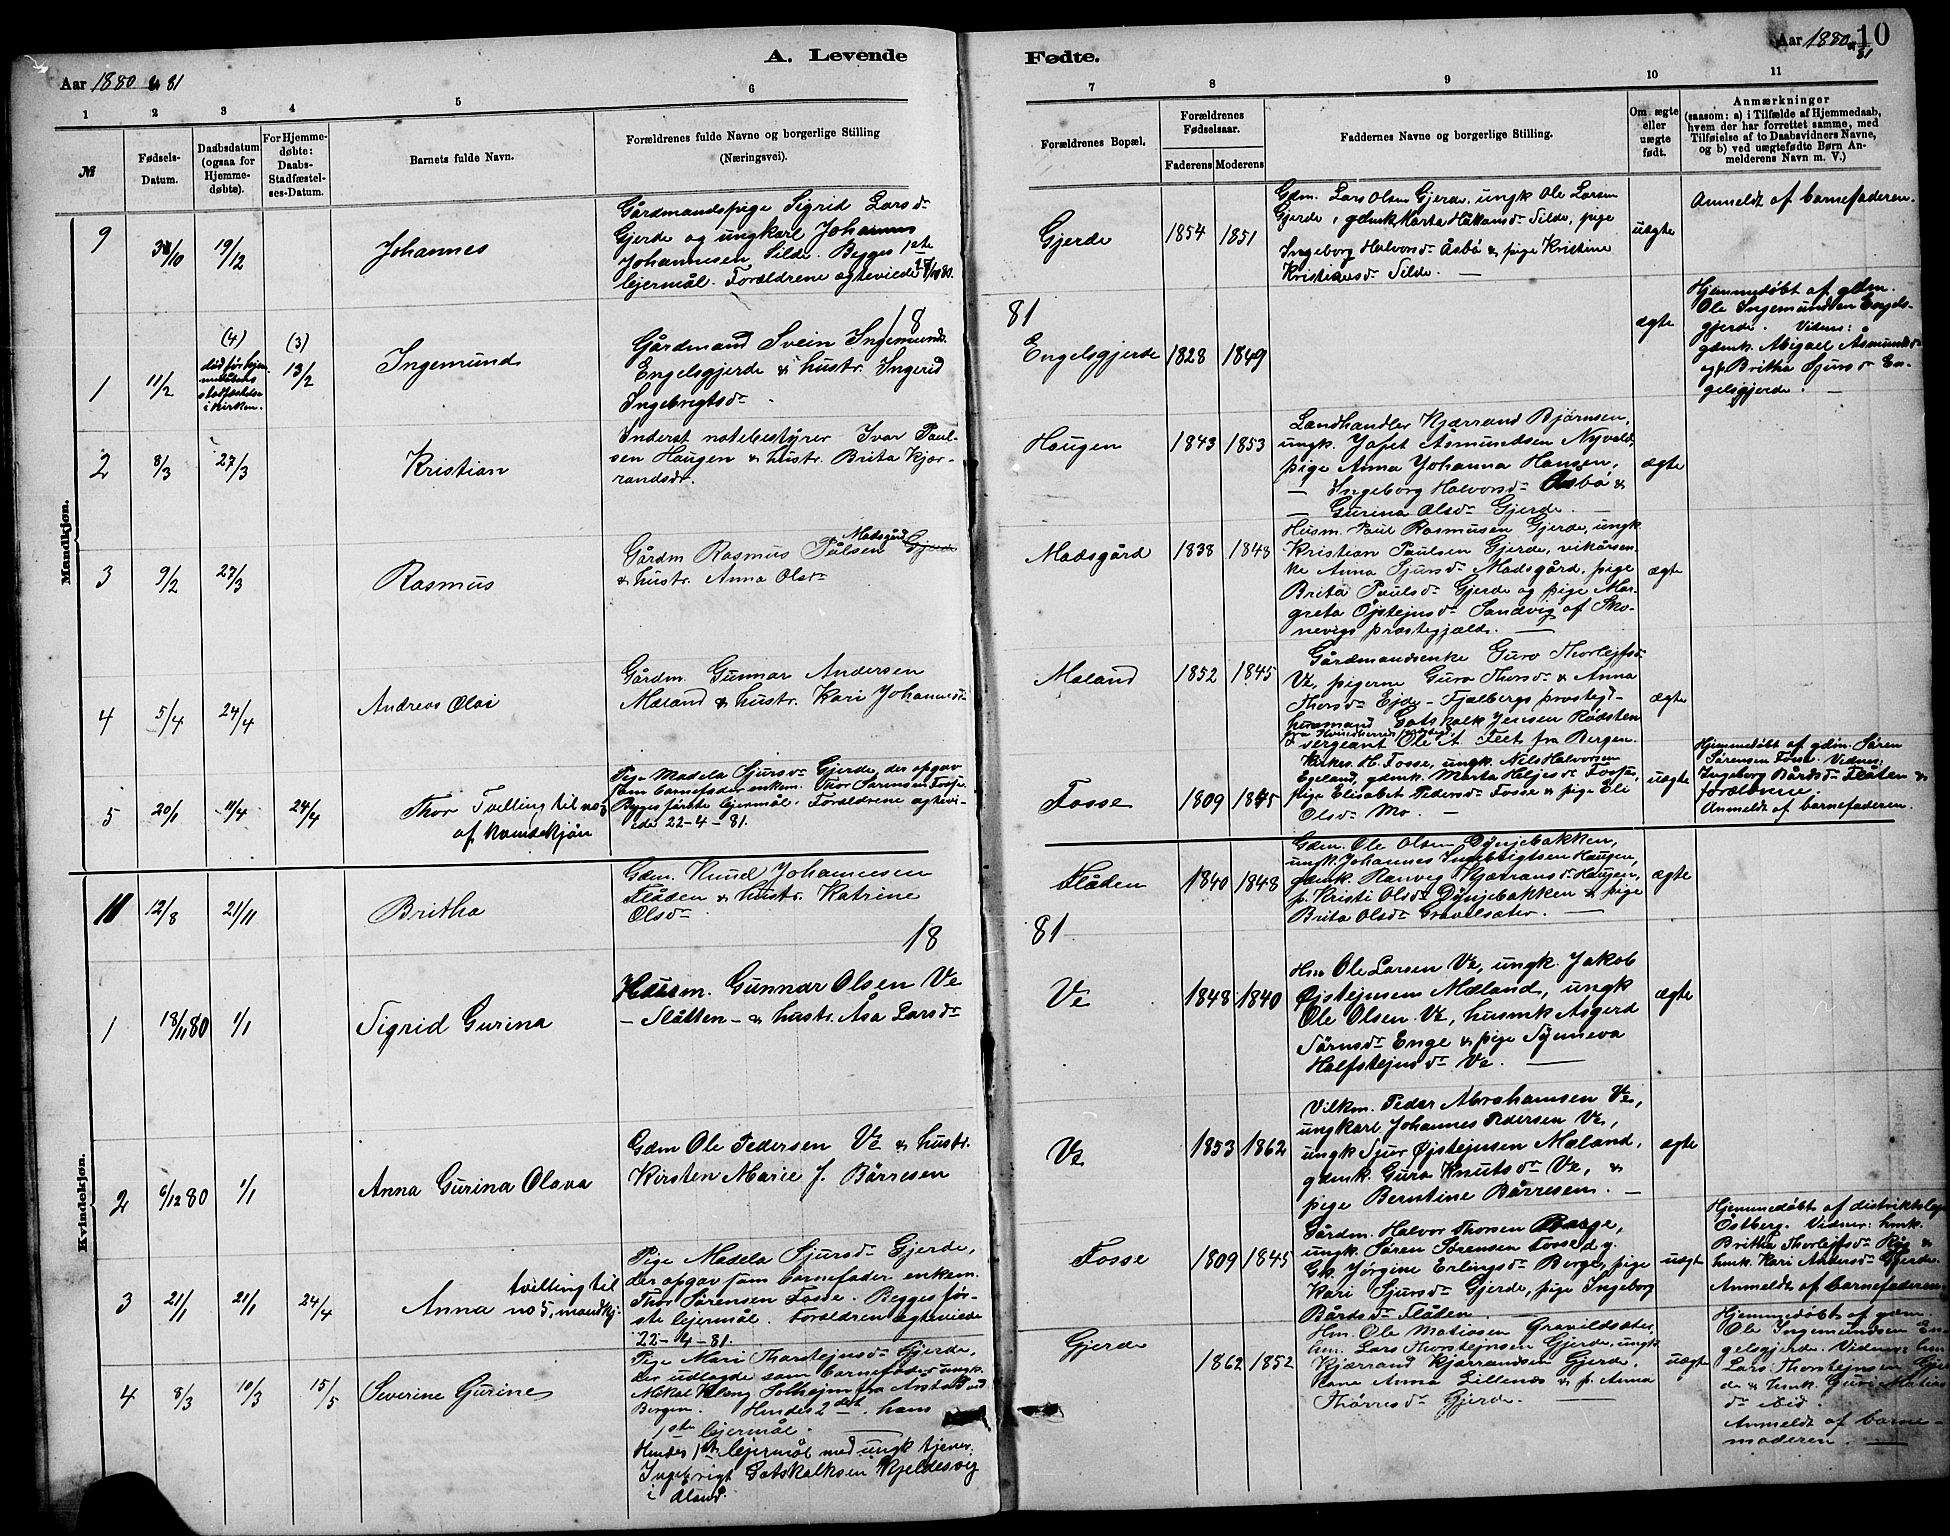 Aar 1880 & 81
A. Levende
Fødte.
Aar 1880 & 81
10
1 2 3 4 5 6 7 8 9 10 11
№
Fødsels-Datum.
Daabsdatum (ogsaa for Hjemme-døbte).
For Hjemme-døbte: Daabs-Stadfæstel-ses-Datum.
Barnets fulde Navn.
Forældrenes fulde Navne og borgerlige Stilling (Næringsvei).
Forældrenes Bopæl.
Forældrenes Fødselsaar.
Faderens Moderens
Faddernes Navne og borgerlige Stilling.
Om ægte eller uægte født.
Anmærkninger
(saasom: a) i Tilfælde af Hjemmedaab,
hvem der har forrettet samme, med
Tilføielse af to Daabsvidners Navne,
og b) ved uægtefødte Børn An-
melderens Navn m. V.)
Mandkjøn.
9
19/12
Johannes
Gårdmandspige Sigrid Larsdr
Gjerde og ungkarl Johannes
Johannesen Silde. Begges 1ste
lejermål. Forældrene ægteviede
Gjerde
1854 1851
Gdm. Lars Olsen Gjerde, ungk Ole Larsen
Gjerde, gdmk. Marta Håkansdr Silde, pige
Ingeborg Halvorsdr Åsbø & pige Kristine
Kristiansdr Silde. —
uægte
Anmeldt af barnefaderen.
18
81
1
11/2
(4)
død før hjem-
medåbens
stadfæstelse
i kirken.
(3)
13/2
Ingemund
Gårdmand Svein Ingemunds.
Engelsgjerde & hustr. Ingerid
Ingebrigtsdr.
Engelsgjerde
1828 1849
ægte
Hjemmedøbt af gdm.
Ole Ingemundsen Engels-
gjerde. Vidner:
gdmk. Abigael Åsmundsdr
og p. Britha Sjursdr En-
gelsgjerde. —
2
8/3
27/3
Kristian
Inderst notebestyrer Ivar Paul-
sen Haugen & hustr. Brita Kjær-
randsdr.
Haugen
1843 1853
Landhandler Kjærrand Bjørnsen,
ungk. Jofet Åsmundsen Nyvold,
pige Anna Johanna Hansen,
— Ingeborg Halvorsdr Åsbø &
— Gurina Olsdr Gjerde. —
ægte
3
9/2
27/3
Rasmus
Gårdm Rasmus Pålsen Madsgård Gjerde
& hustr. Anna Olsdr
Madsgård
1838 1843
Husm. Paul Rasmusen Gjerde, ungk
Kristian Paulsen Gjerde, vikårsen-
ke Anna Sjursdr Madsgård, pige
Brita Paulsdr Gjerde og pige Mar-
greta Øjstejnsdr Sandvig af Sko-
nevigs præstegjæld. —
ægte
4
5/4
24/4
Andreas Olai
Gårdm. Gunnar Andersen
Mæland & hustr. Kari Johannesdr
Mæland
1852 1845
Gårdmandsenke Guro Thorlejfsdr
Ve, pigerne Guro Thorsdr & Anna
Thorsdr Ejde - Fjelbergs prestegd -
husmand Gotskalk Jensen Rødsten
fra Kvindherreds prestegd.
& sergeant Ole A. Feet fra Bergen.
ægte
5
20/1
11/4
24/4
Thor Tvilling til no 3
af kvindekjøn
Pige Madela Sjursdr Gjerde, der opgav
som barnefader enkem. Thor Sørensen Fosse.
Begges første lejermål. Forældrene ægtevi-
ede 22-4-81.
Fosse
1809 1845
Kirkes. H. Fosse, ungk. Nils Halvorsen
Egeland, gdmk. Marta Heljesdr Fosse,
pige Elisabet Pedersdr Fosse & pige Eli
Olsdr Mo. —
uægte
Hjemmedøbt af gdm. Søren
Sørensen Fosse. Vidner:
Ingeborg Bårdsdr Flåten &
forældrene.
Anmeldt af barnefaderen.
Kvindekjøn.
11
12/8
21/11
Britha
Gdm. Knud Johannesen
Flåden & hustr. Katrine
Olsdr
Flåden
1840 1848
Gdm. Ole Olsen Dynjebakken,
ungk. Johannes Ingebrigtsen Haugen,
gdmk. Ranveig Kjærransdr Haugen,
p. Kristi Olsdr Dynjebakken & pige
Brita Olsdr Gravelsæter. —
ægte
18
81
1
18/11 80
1/1
Sigrid Gurina
Husm. Gunnar Olsen Ve
— Slåtten — & hustr. Åsa Larsdr
Ve
1848 1840
Hm Ole Larsen Ve, ungk. Jakob
Øjstejnsen Mæland, ungk
Ole Olsen Ve, husmk Asgerd
Sørnsdr Enge & pige Synneva
Halfstejnsdr Ve. —
ægte
2
6/12 80
1/1
Anna Gurina Olava
Gdm Ole Pedersen Ve & hustr.
Kirsten Marie J. Børresen
Ve
1853 1862
Vilkm. Peder Abrahamsen Ve,
ungkarl Johannes Pedersen Ve,
ungk Sjur Øjstejnsen Mæland,
gdmk. Guro Knutsdr Ve, &
pige Berntine Børresen. —
ægte
3
21/1
21/1
24/4
Anna tvilling til
no 5, mandkj:
Pige Madela Sjursdr Gjerde,
der opgav som barnefader enkem.
Thor Sørensen Fosse. Begges før-
ste lejermål. Forældren ægteviede
22-4-81.
Fosse
1809 1845
Gårdm. Halvor Thorsen Borge,
ungk. Søren Sørensen Fosse d.y.
Gk Jørgine Erlingsdr Borge, pige
Kari Sjursdr Gjerde, pige Ingeborg
Bårdsdr Flåden.
uægte
Hjemmedøbt af distriktslæge
Østberg. Vidner: hmk.
Britha Thorlejfsdr &
hmk. Kari Andersdr Gjerde.
Anmeldt af barnefaderen.
4
8/3
10/3
15/5
Severine Gurine
Pige Mari Thorstejnsdr Gjerde,
der udlagde som barnefader ungk.
Mikal Kleng Solhejm fra Årstad ved
Bergen. Hendes 2det, hans
1ste lejermål.
Hendes 1ste lejermål med ungk tjener
Ingebrigt Gotskalksen Kjeldesvig
i Ølund.
Gjerde
1862 1852
Hm. Ole Matiasen Gravildsæter,
hm. Lars Thorstejnsen Gjerde, ungk
Kjærrand Kjærrandsen Gjerde,
Kone Anna Lillenes & p. Anna
Thørresdr Gjerde. —
uægte
Hjemmedøbt af gdm.
Ole Ingemundsen En-
gelsgjerde. Vidner: hm
Lars Thorstejnsen Gjer-
de & hmk. Guri Matias-
dr ibid.
Anmeldt af barne-
moderen. —